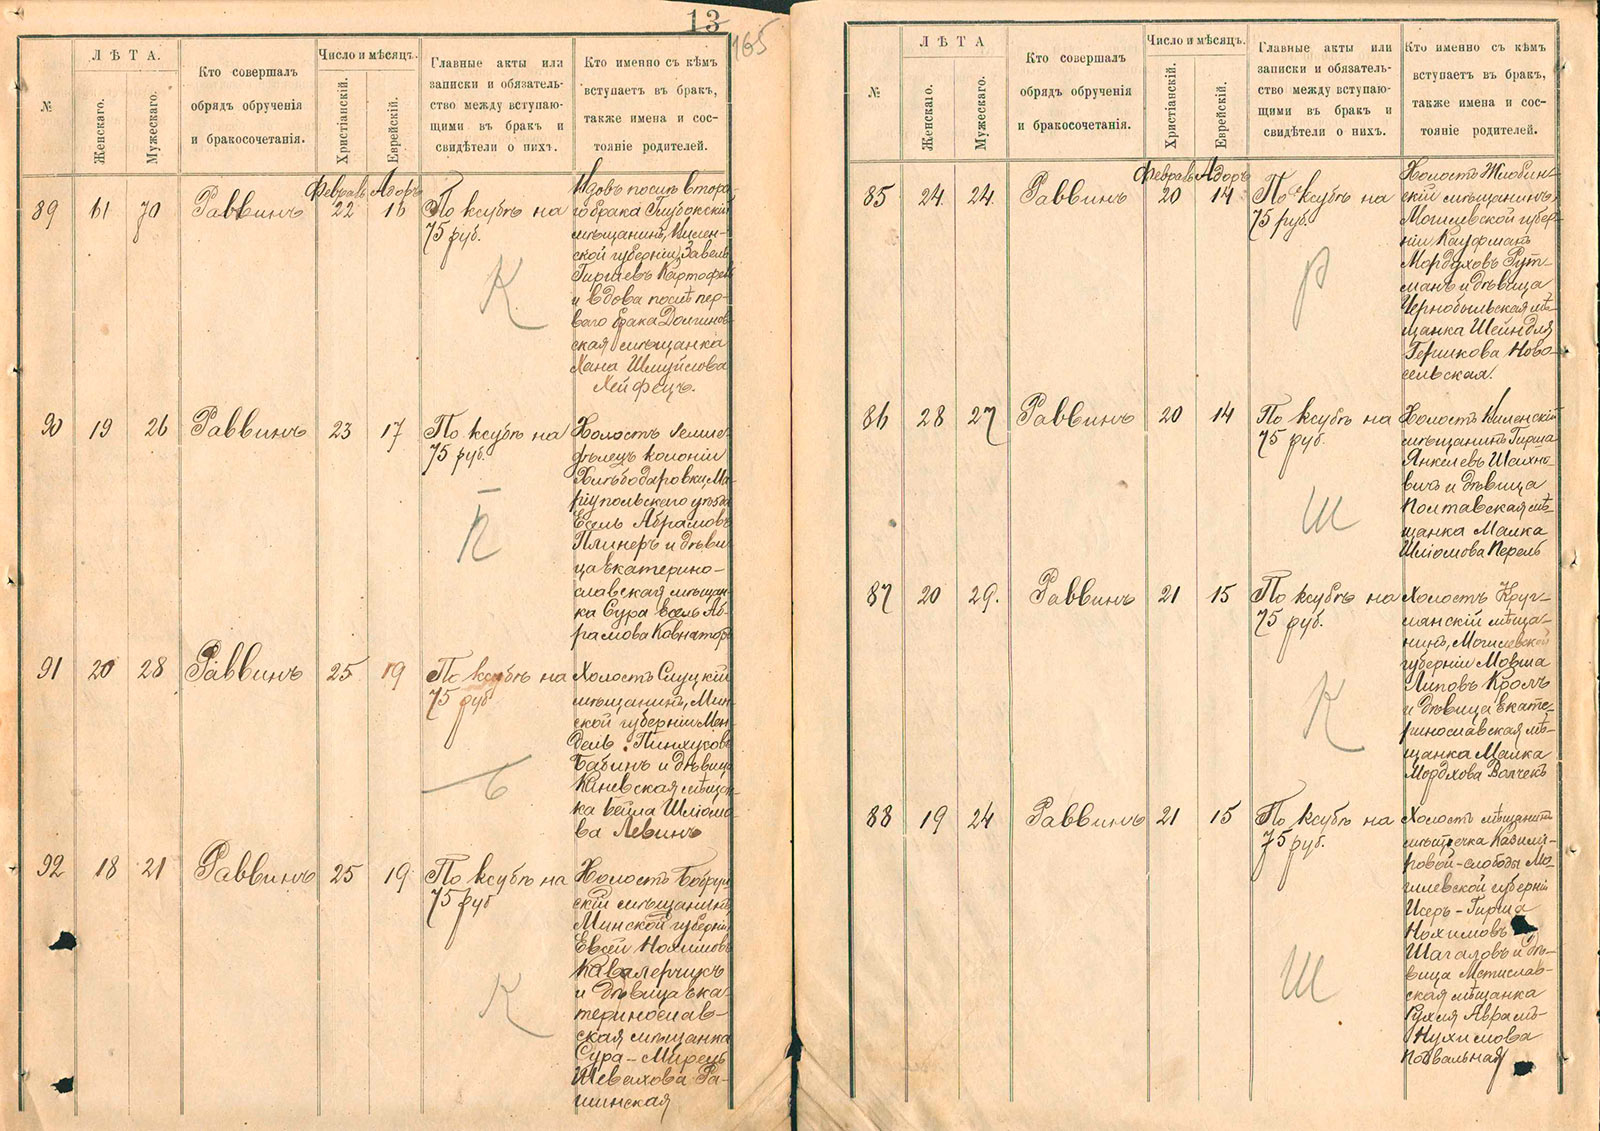 13
165
№
ЛѢТА.
Женскаго.
Мужескаго.
Кто совершалъ
обрядъ обрученія
и бракосочетанія.
Число и мѣсяцъ.
Христіанскій.
Еврейскій.
Главные акты или
записки и обязатель-
ство между вступаю-
щими въ бракъ и
свидѣтели о нихъ.
Кто именно съ кѣмъ
вступаетъ въ бракъ,
также имена и сос-
тояніе родителей.
89
61
70
Раввинъ
Февраль
22
Адоръ
16
По ксубѣ на
75 руб.
К
Вдовъ послѣ второ-
го брака Глубокскій
мѣщанинъ, Вилен-
ской губерніи, Завель
Гиршевъ Картофель
и вдова послѣ пер-
ваго брака Долгинов-
ская мѣщанка
Хана Шмуйлова
Хейфецъ.
90
19
26
Раввинъ
23
17
По ксубѣ на
75 руб.
П
Холостъ земле-
дѣлецъ колоніи
Хлѣбодаровки, Ма-
ріупольскаго уѣзда
Есель Абрамовъ
Плинеръ и дѣви-
ца Екатерино-
славская мѣщан-
ка Сура Бейль Аб-
рамова Ковнаторъ
91
20
28
Раввинъ
25
19
По ксубѣ на
75 руб
Б
Холостъ Слуцкій
мѣщанинъ, Мин-
ской губерніи Мен-
дель Пинхусовъ
Бабинъ и дѣвица
Каневская мѣщан-
ка Бейла Шліомо-
ва Левинъ
92
18
21
Раввинъ
25
19
По ксубѣ на
75 руб
К
Холостъ Бобруй-
скій мѣщанинъ,
Минской губерніи
Евсей Нохимовъ
Кавалерчикъ
и дѣвица Ека-
теринослав-
ская мѣщанка
Сура-Мирецъ
Шевахова Ра-
шинская
№
ЛѢТА
Женскаго.
Мужескаго.
Кто совершалъ
обрядъ обрученія
и бракосочетанія.
Число и мѣсяцъ.
Христіанскій.
Еврейскій.
Главные акты или
записки и обязатель-
ства между вступаю-
щими въ бракъ и
свидѣтели о нихъ.
Кто именно съ кѣмъ
вступаетъ въ бракъ,
также имена и сос-
тояніе родителей.
85
24
24
Раввинъ
Февраль
20
Адоръ
14
По ксубѣ на
75 руб.
Р
Холостъ Жлобин-
скій мѣщанинъ,
Могилевской губер-
ніи Кауфманъ
Мордуховъ Рут-
манъ и дѣвица
Чернобыльская мѣ-
щанка Шейндля
Гершкова Ново-
сельская.
86
28
27
Раввинъ
20
14
По ксубѣ на
75 руб.
Ш
Холостъ Виленскій
мѣщанинъ Гирша
Янкелевъ Шахно-
вичъ и дѣвица
Полтавская мѣ-
щанка Малка
Шліомова Перель
87
20
29.
Раввинъ
21
15
По ксубѣ на
75 руб.
К
Холостъ Круг-
лянскій мѣща-
нинъ, Могилевской
губерніи Мовша
Липовъ Кролъ
и дѣвица Екате-
ринославская мѣ-
щанка Малка
Мордхова Волчекъ
88
19
24
Раввинъ
21
15
По ксубѣ на
75 руб.
Ш
Холостъ мѣщанинъ
мѣстечка Казими-
ровой-слободы Мо-
гилевской губерніи
Исеръ-Гирша
Нохимовъ
Шагаловъ и дѣ-
вица Мстислав-
ская мѣщанка
Рухля Аврамъ-
Нухимова
Повальная